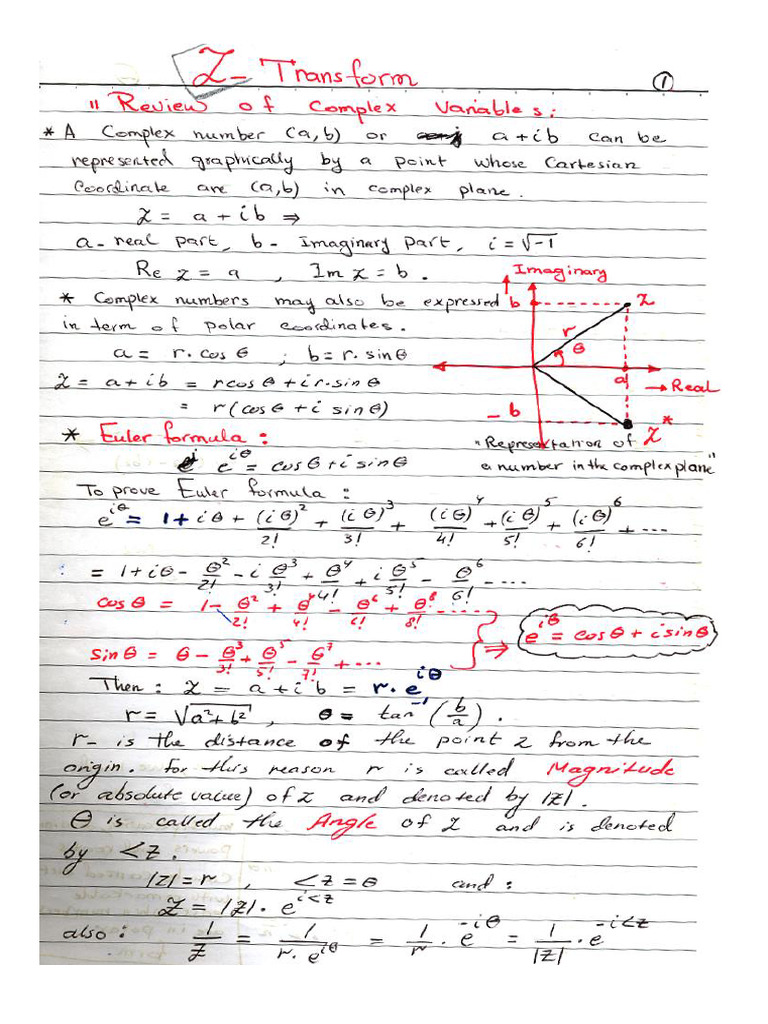 Z- Transform
①
" Review of Complex Variables:
* A Complex number (a,b) or a+ib can be
represented graphically by a point whose Cartesian
Coordinate are (a,b) in complex plane.
Z = a + ib ⇒
a- real part, b- Imaginary part, i = √-1
Re z = a , Im z = b .
* Complex numbers may also be expressed
in term of polar coordinates.
a = r. cos θ ; b = r. sin θ
Z = a + ib = r cos θ + i r. sin θ
= r (cos θ + i sin θ)
Imaginary
b
Z
r
θ
a
→ Real
- b
Z*
"Representation of
a number in the complex plane"
* Euler formula :
e^{iθ} = cos θ + i sin θ
To prove Euler formula :
e^{iθ} = 1 + iθ + (iθ)^2/2! + (iθ)^3/3! + (iθ)^4/4! + (iθ)^5/5! + (iθ)^6/6! + ....
= 1 + iθ - θ^2/2! - i θ^3/3! + θ^4/4! + i θ^5/5! - θ^6/6! - ....
cos θ = 1 - θ^2/2! + θ^4/4! - θ^6/6! + θ^8/8! ......
sin θ = θ - θ^3/3! + θ^5/5! - θ^7/7! + ....
⇒ e^{iθ} = cos θ + i sin θ
Then : Z = a + i b = r. e^{iθ}
r = √(a²+b²) , θ = tan^{-1} (b/a) .
r- is the distance of the point z from the
origin. for this reason r is called Magnitude
(or absolute value) of z and denoted by |Z|.
θ is called the Angle of Z and is denoted
by <Z.
|Z| = r , <Z = θ and :
Z = |Z|. e^{i<Z}
also : 1/Z = 1/(r. e^{iθ}) = 1/r . e^{-iθ} = 1/|Z| . e^{-i<Z}